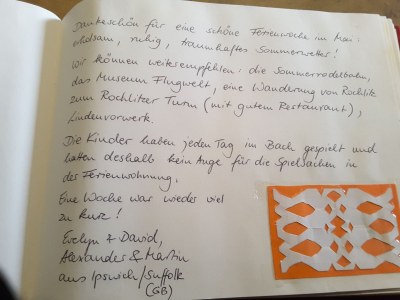 Dankeschön für eine schöne Ferienwoche im Mai:
erholsam, ruhig, traumhaftes Sommerwetter!
Wir können weiterempfehlen: die Sommerrodelbahn,
das Museum Flugwelt, eine Wanderung von Rochlitz
zum Rochlitzer Turm (mit gutem Restaurant),
Lindenvorwerk.
Die Kinder haben jeden Tag im Bach gespielt und
hatten deshalb kein Auge für die Spielsachen in
der Ferienwohnung.
Eine Woche war wieder viel
zu kurz!
Evelyn & David,
Alexander & Martin
aus Ipswich/Suffolk
(GB)